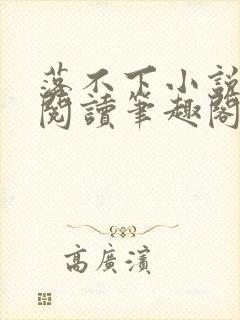 落不下小說
閱讀筆趣閣
高廣濱